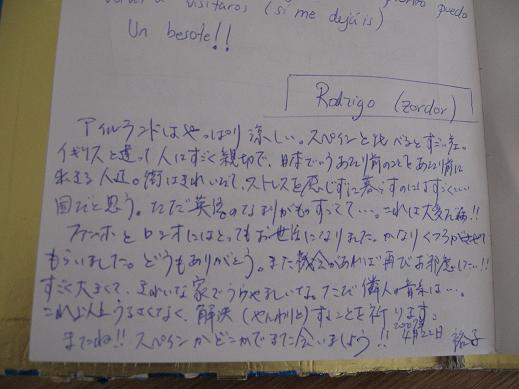 visitaros (si me dejáis) puedo
Un besote!!
Rodrigo (zordor)
アイルランドはやっぱり涼しい。スペインと比べるとすごい差。
イギリスと違って人はすごく親切で、日本でいうあたり前のことをあたり前に
出来る人達。街はきれいだし、ストレスを感じずに暮らすのにはすごくいい
国だと思う。ただ英語のなまりがものすっごくて…。これは大変だ!!
ファンホとロシオにはとってもお世話になりました。かなりくつろがせて
もらいました。どうもありがとう。また機会があれば再びお邪魔したい!!
すごく大きくて、きれいな家でうらやましいなぁ。ただ隣人の音楽は…。
これ以上うるさくなく、解決(やんわりと)することを祈ります。
またね!! スペインかどこかでまた会いましょう!!
4月22日 裕子